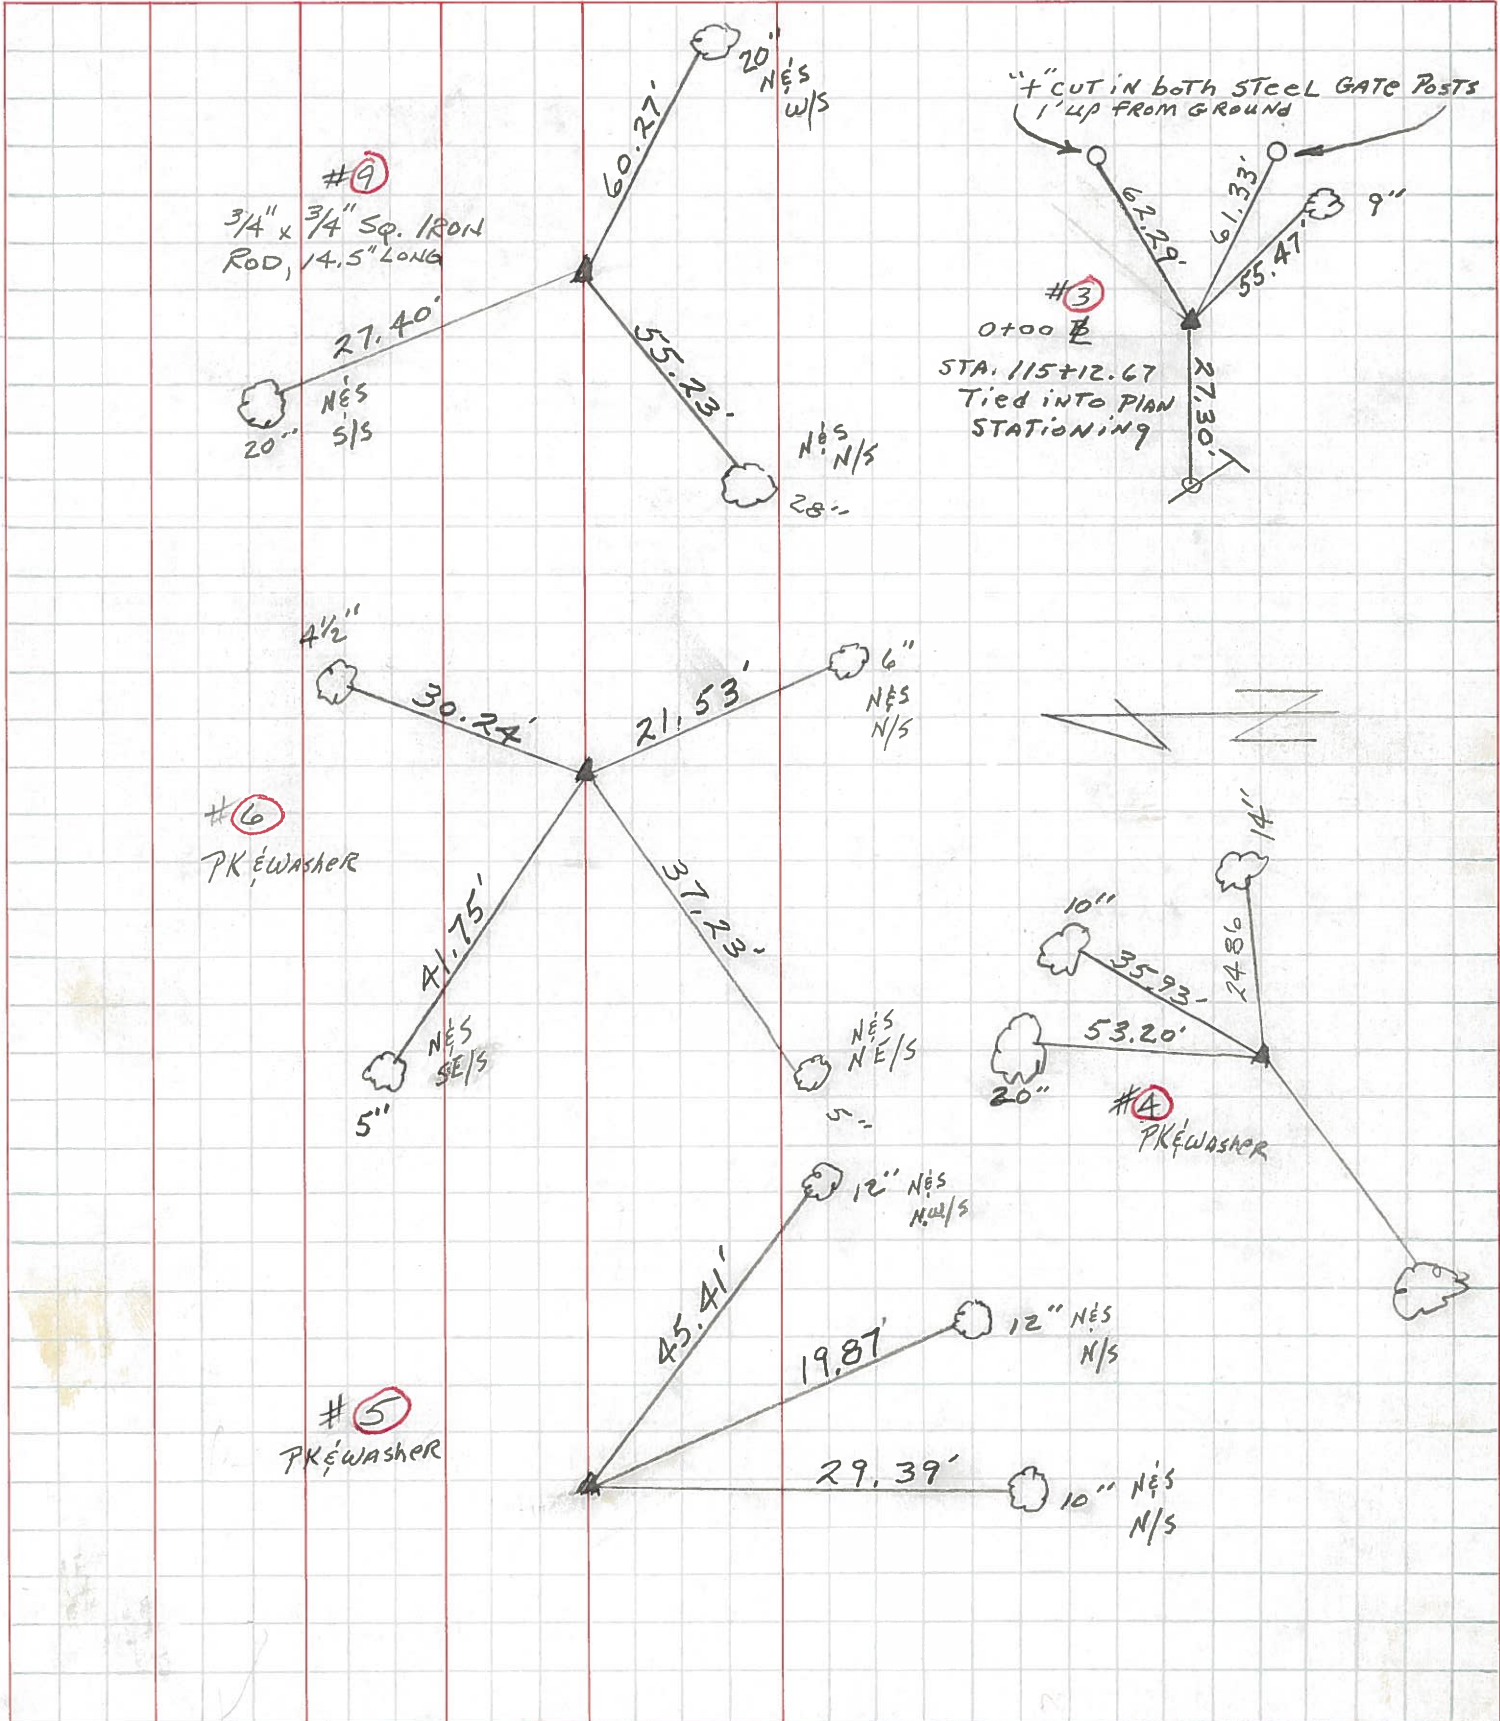 20" N&S
W/S
60.27'
#9
3/4" x 3/4" SQ. IRON
ROD, 14.5" LONG
27.40'
N&S
S/S
20"
55.23'
N&S
N/S
28"
"+" CUT IN both STEEL GATE POSTS
1' UP FROM GROUND
62.29'
61.33'
55.47'
9"
#3
0+00 BL
STA. 115+12.67
Tied INTO PLAN
STATIONING
27.30'
4 1/2"
30.24'
21.53'
6"
N&S
N/S
#6
PK & WASHER
41.75'
N&S
SE/S
5"
37.23'
N&S
NE/S
5"
N
14"
24.86
10"
35.93'
53.20'
20"
#4
PK & WASHER
12" N&S
N.W/S
45.41'
19.87'
12" N&S
N/S
#5
PK & WASHER
29.39'
10" N&S
N/S